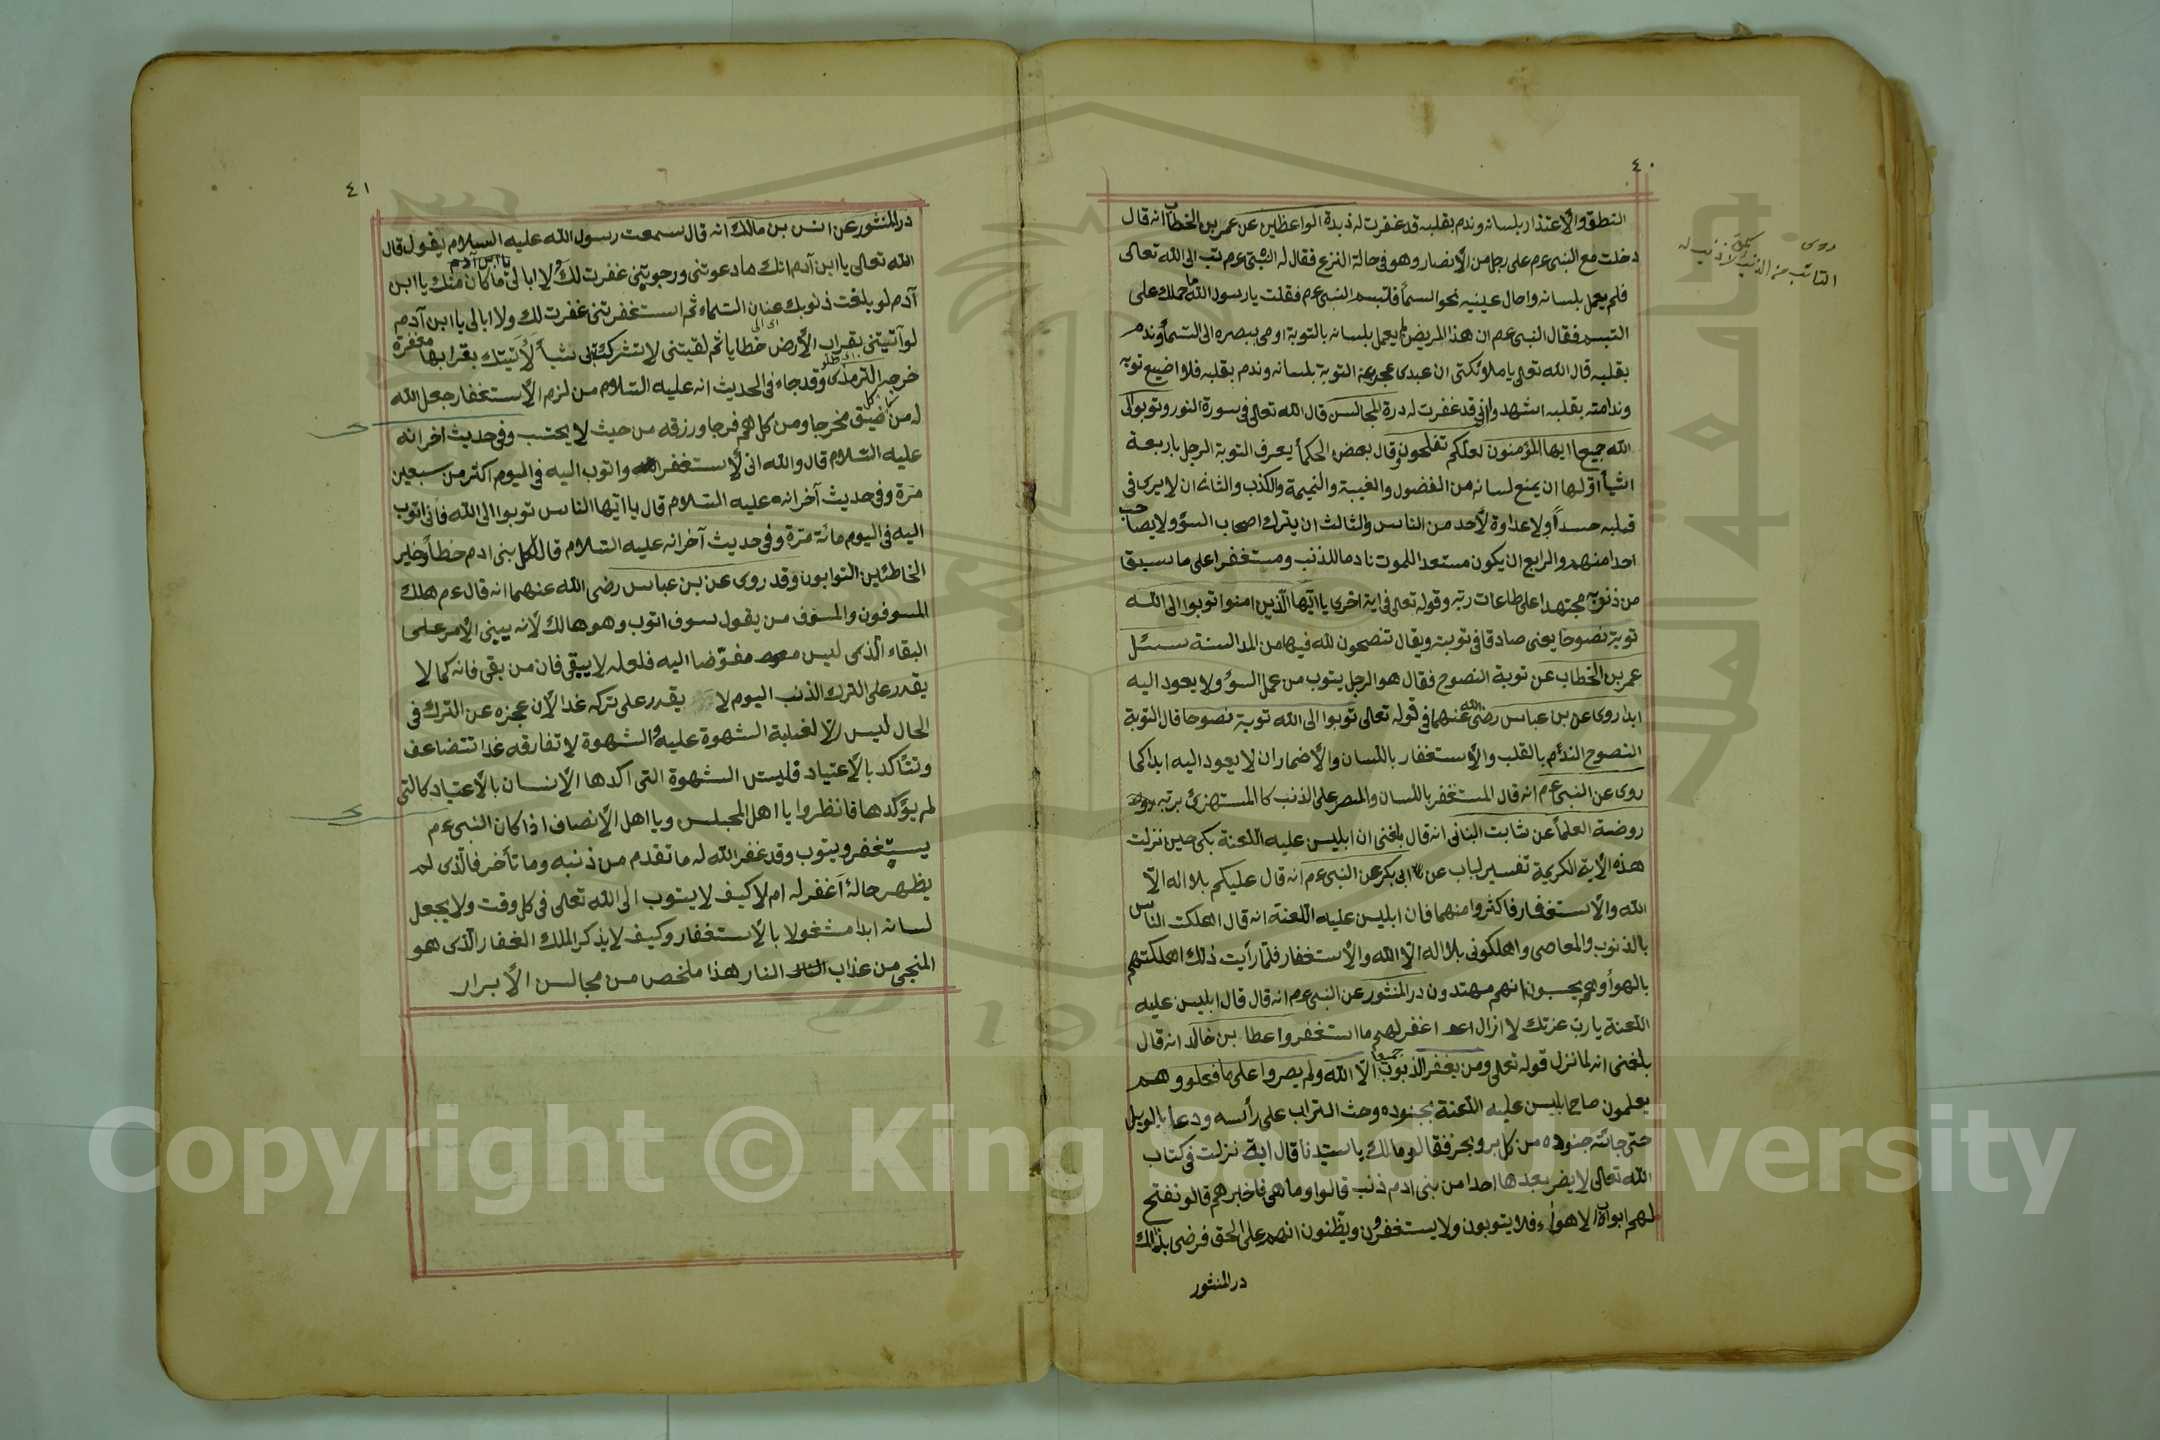 ٤٠
النطق والأعتذار بلسانه وندم بقلبه قد غفرت له زبدة الواعظين عن عمر بن الخطاب انه قال
دخلت مع النبى عم على رجل من الأنصار وهو فى حالة النزع فقال له النبى عم تب الى الله تعالى
فلم يعمل بلسانه واحال عينيه نحو السمأ فتبسم النبى عم فقلت يا رسول الله ما حملك على
التبسم فقال النبى عم ان هذا المريض لم يعمل بلسانه بالتوبة اومى ببصره الى السمأ وندم
بقلبه قال الله تعالى يا ملائكتى ان عبدى عجز عن التوبة بلسانه وندم بقلبه فلا اضيع توبته
وندامته بقلبه اشهدوا انى قد غفرت له درة المجالس قال الله تعالى فى سورة النور وتوبوا الى
الله جميعا ايها المؤمنون لعلكم تفلحون وقال بعض الحكمأ يعرف التوبة الرجل باربعة
اشيأ اولها ان يمنع لسانه من الفضول والغيبة والنميمة والكذب والثانى ان لا يرى فى
قلبه حسداً ولا عداوة لأحد من الناس والثالث ان يترك اصحاب السؤ ولا يصاحب
احدا منهم والرابع ان يكون مستعدا للموت نادما للذنب ومستغفرا على ما سبق
من ذنوبه مجتهدا على طاعات ربه وقوله تعالى فى اية اخرى يا ايها الذين امنوا توبوا الى الله
توبة نصوحا يعنى صادقا فى توبته ويقال تنصحون لله فيها من المدالسنة سئل
عمر بن الخطاب عن توبة النصوح فقال هو الرجل يتوب من عمل السؤ ولا يعود اليه
ابدا روى عن بن عباس رضى الله عنهما فى قوله تعالى توبوا الى الله توبة نصوحا قال التوبة
النصوح الندم بالقلب والأستغفار باللسان والأضمار ان لا يعود اليه ابدا كما
روى عن النبى عم انه قال المستغفر باللسان والمصر على الذنب كالمستهزئ بربه
روضة العلمأ عن ثابت البنانى انه قال بلغنى ان ابليس عليه اللعنة بكى حين نزلت
هذه الأية الكريمة تفسير لباب عن ابى بكر عن النبى عم انه قال عليكم بلا اله الا
الله والأستغفار فاكثروا منهما فان ابليس عليه اللعنة انه قال اهلكت الناس
بالذنوب والمعاصى واهلكونى بلا اله الا الله والأستغفار فلما رأيت ذلك اهلكتهم
بالهوأ وهم يحسبون انهم مهتدون در المنثور عن النبى عم انه قال قال ابليس عليه
اللعنة يا رب عزتك لا ازال اغفر لهم ما استغفروا عطا بن خالد انه قال
بلغنى انه لما نزل قوله تعالى ومن يغفر الذنوب جميعا الا الله ولم يصروا على ما فعلوا وهم
يعلمون صاح ابليس عليه اللعنة بجنوده وحث التراب على رأسه ودعا بالويل
حتى جائته جنوده من كل بر وبحر فقالو مالك يا سيدنا قال اية نزلت فى كتاب
الله تعالى لا يضر بعدها احدا من بنى ادم ذنب قالوا وما هى فاخبرهم قالو نفتح
لهم ابواب الاهوأ فلا يتوبون ولا يستغفرون ويظنون انهم على الحق فرضى بذلك
در المنثور
روى
التائب من الذنب كمن لا ذنب له
٤١
در المنثور عن انس بن مالك انه قال سمعت رسول الله عليه السلام يقول قال
الله تعالى يا ابن آدم انك ما دعوتنى ورجوتنى غفرت لك ولا ابالى ما كان منك يا ابن
يا ابن آدم
آدم لو بلغت ذنوبك عنان السماء ثم استغفرتنى غفرت لك ولا ابالى يا ابن آدم
لو آتيتنى بقراب الأرض خطايا ثم لقيتنى لا تشرك بى شيأ لأتيتك بقرابها مغفرة
خرجه الترمذى وقد جاء فى الحديث انه عليه السلام من لزم الأستغفار جعل الله
له من كل ضيق مخرجا ومن كل هم فرجا ورزقه من حيث لا يحتسب وفى حديث اخر انه
عليه السلام قال والله انى لأستغفر الله واتوب اليه فى اليوم اكثر من سبعين
مرة وفى حديث آخر انه عليه السلام قال يا ايها الناس توبوا الى الله فانى اتوب
اليه فى اليوم مائة مرة وفى حديث آخر انه عليه السلام قال كل بنى ادم خطأ وخير
الخاطئين التوابون وقد روى عن بن عباس رضى الله عنهما انه قال عم هلك
المسوفون والمسوف من يقول سوف اتوب وهو هالك لأنه يبنى الأمر على
البقاء الذى ليس مفوضا اليه فلعله لا يبقى فان من بقى فانه كما لا
يقدر على الترك الذنب اليوم لا يقدر على تركه غدا لأن عجزه عن الترك فى
الحال ليس الا لغلبة الشهوة عليه والشهوة لا تفارقه غدا تتضاعف
وتتأكد بالأعتياد فليست الشهوة التى اكدها الأنسان بالأعتياد كالتى
لم يؤكدها فانظروا يا اهل المجلس ويا اهل الأنصاف اذا كان النبى عم
يستغفر ويتوب وقد غفر الله له ما تقدم من ذنبه وما تأخر فالذى لم
يظهر حالهُ أغفر له ام لا كيف لا يتوب الى الله تعالى فى كل وقت ولا يجعل
لسانه ابدا مشغولا بالأستغفار وكيف لا يذكر الملك الغفار الذى هو
المنجى من عذاب النار هذا ملخص من مجالس الأبرار
Copyright © King Saud University